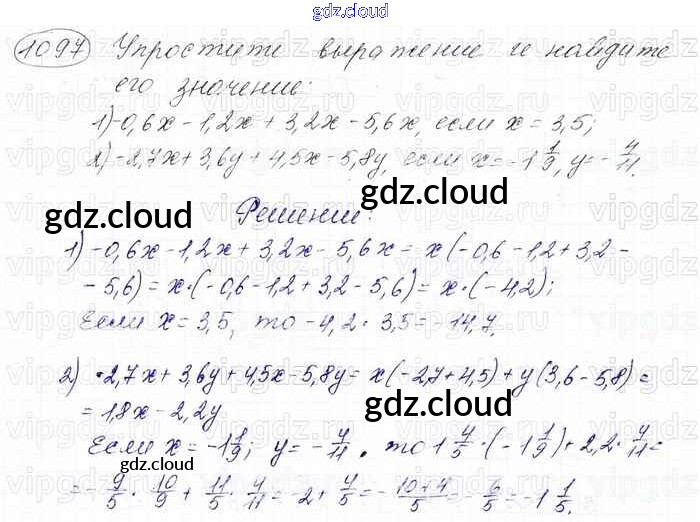 gdz.cloud
1097 Упростите выражение и найдите
его значение:
1) -0,6x - 1,2x + 3,2x - 5,6x, если x = 3,5;
2) -2,7x + 3,6y + 4,5x - 5,8y, если x = -1 1/9, y = - 4/11.
gdz.cloud
gdz.cloud
Решение:
1) -0,6x - 1,2x + 3,2x - 5,6x = x(-0,6 - 1,2 + 3,2 -
- 5,6) = x·(-0,6 - 1,2 + 3,2 - 5,6) = x·(-4,2);
Если x = 3,5, то -4,2 · 3,5 = -14,7.
2) -2,7x + 3,6y + 4,5x - 5,8y = x(-2,7 + 4,5) + y(3,6 - 5,8) =
= 1,8x - 2,2y
gdz.cloud
Если x = -1 1/9; y = - 4/11, то 1 4/5 · (-1 1/9) + 2,2 · 4/11 =
gdz.cloud
= - 9/5 · 10/9 + 11/5 · 4/11 = -2 + 4/5 = - (10+4)/5 = - 6/5 = -1 1/5.